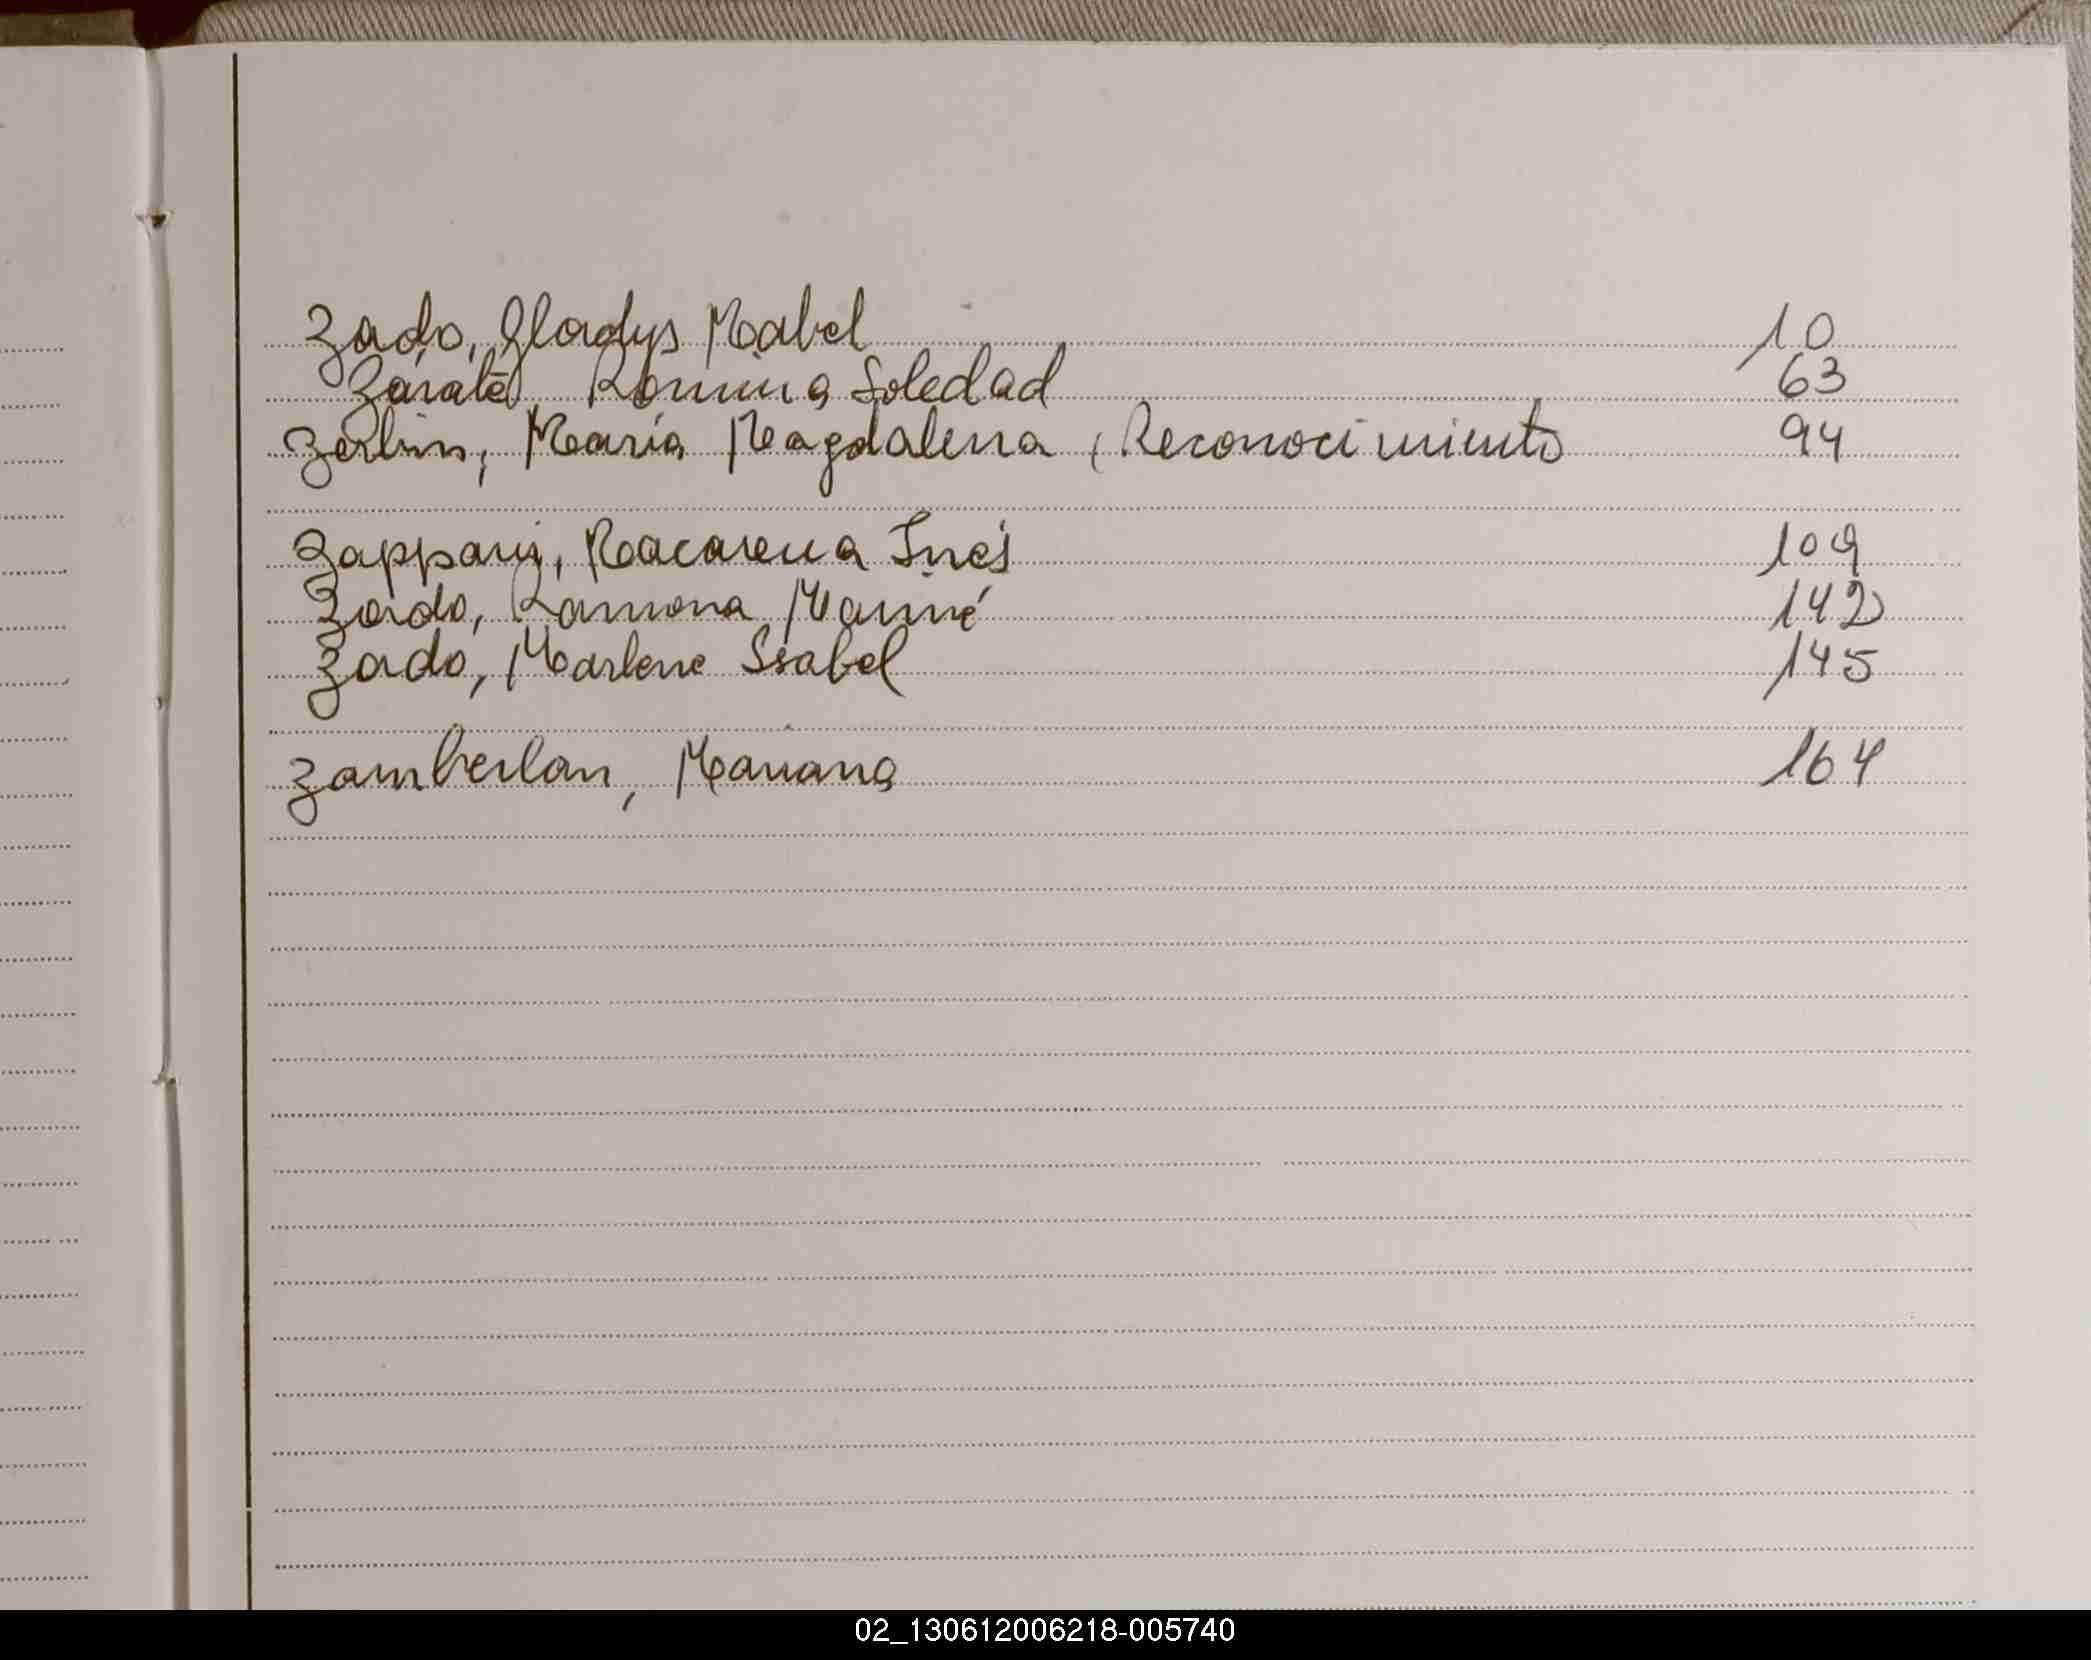 Zado, Gladys Mabel 10
Zárate Romina Soledad 63
Zerbin, María Magdalena (Reconocimiento 94
Zappani, Macarena Inés 109
Zordo, Ramona 142
Zado, Marlene Isabel 145
Zamberlan, Mariana 164
02_130612006218-005740